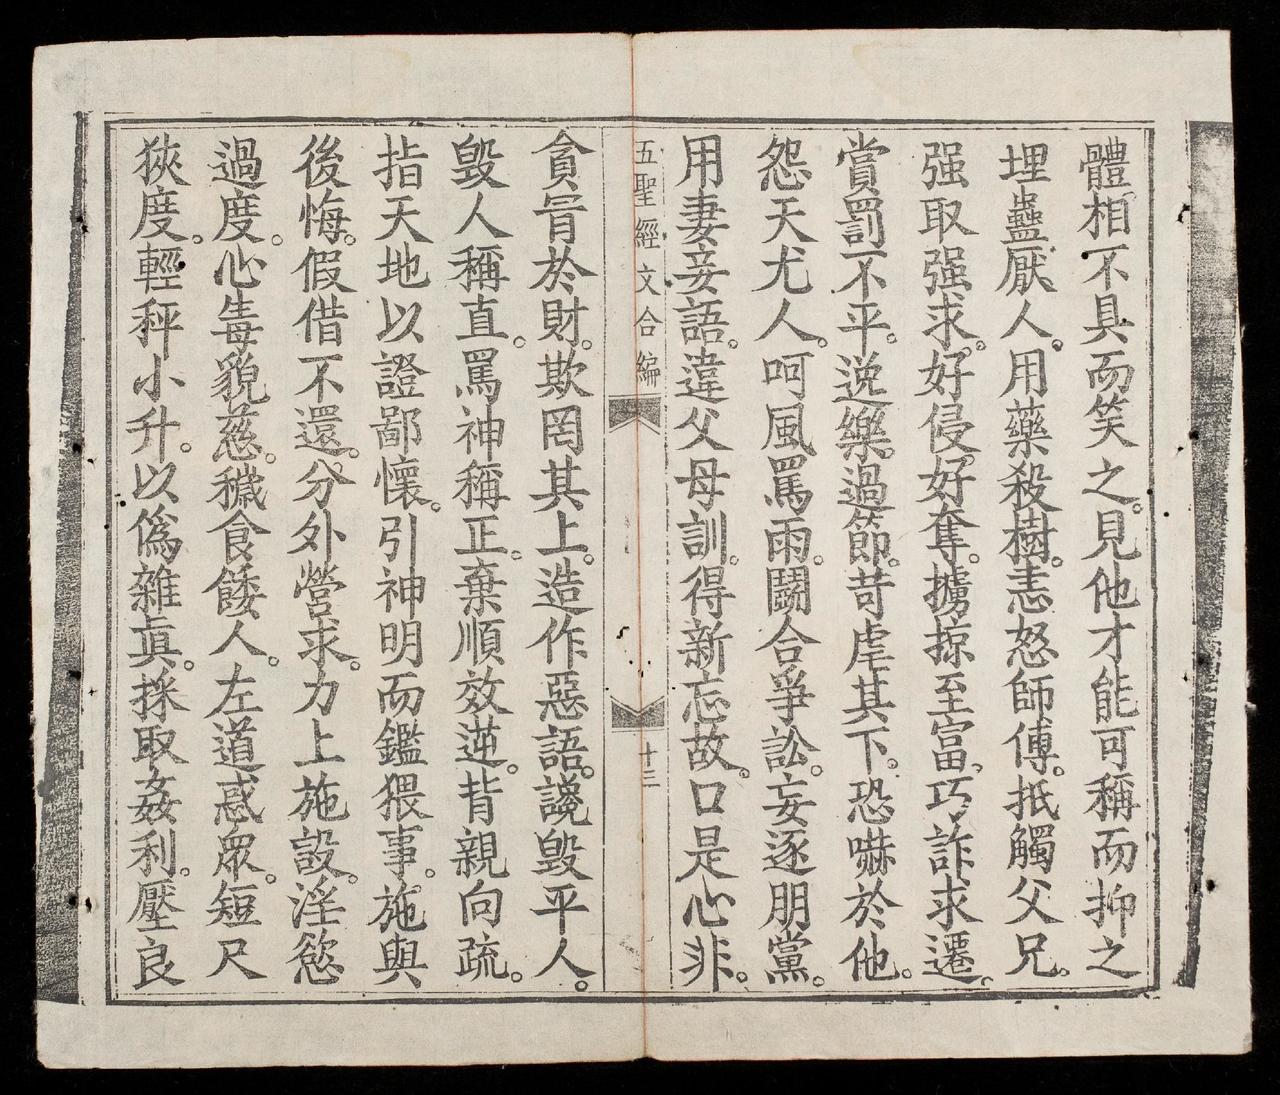 體。相不具而笑之。見他才能可稱而抑之
埋蠱厭人。用藥殺樹。恚怒師傅。抵觸父兄。
强取强求。好侵好奪。擄掠至富。巧詐求遷。
賞罰不平。逸樂過節。苛虐其下。恐嚇於他。
怨天尤人。呵風罵雨。鬭合爭訟。妄逐朋黨。
用妻妾語。違父母訓。得新忘故。口是心非。
五聖經文合編
十三
貪冐於財。欺罔其上。造作惡語。讒毀平人。
毀人稱直。罵神稱正。棄順效逆。背親向疏。
指天地以證鄙懷。引神明而鑑猥事。施與
後悔。假借不還。分外營求。力上施設。淫慾
過度。心毒貌慈。穢食餧人。左道惑眾。短尺
狹度。輕秤小升。以僞雜眞。採取姦利。壓良